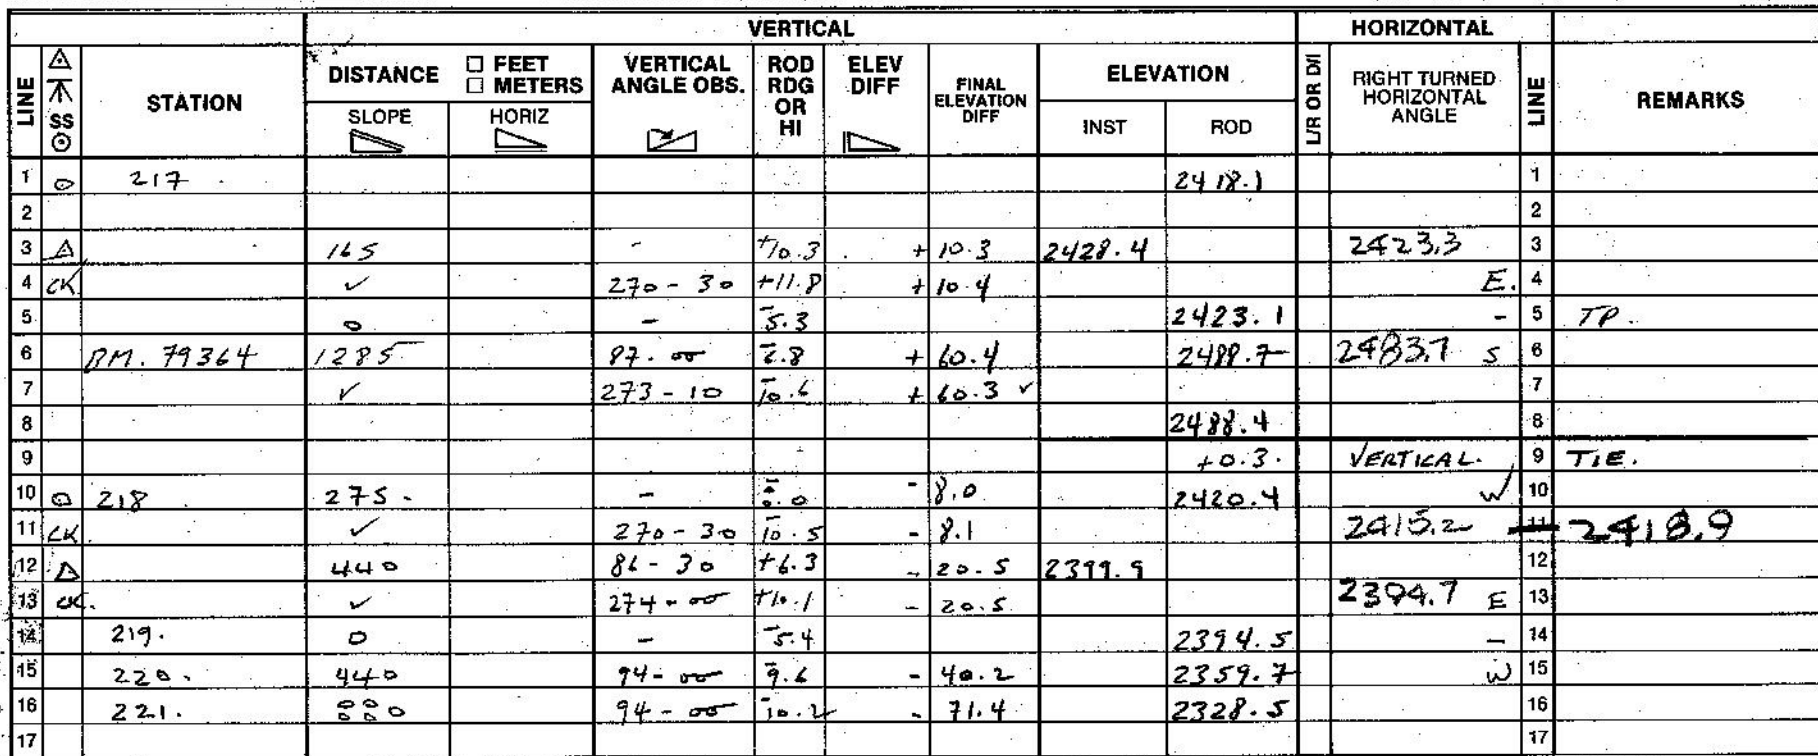 VERTICAL HORIZONTAL
LINE SS STATION DISTANCE □ FEET □ METERS VERTICAL ANGLE OBS. ROD RDG OR HI ELEV DIFF FINAL ELEVATION DIFF ELEVATION L/R OR D/I RIGHT TURNED HORIZONTAL ANGLE LINE REMARKS
SLOPE HORIZ INST ROD
1 217 2418.1 1
2 2
3 165 - +10.3 +10.3 2428.4 2423.3 3
4 CK ✓ 270-30 +11.8 +10.4 E. 4
5 0 - -5.3 2423.1 - 5 TP.
6 BM. 79364 1285 87-00 -6.8 +60.4 2488.7 2483.7 S 6
7 ✓ 273-10 -10.6 +60.3 ✓ 7
8 2488.4 8
9 +0.3. VERTICAL. 9 TIE.
10 218 275. - -8.0 -8.0 2420.4 W 10
11 CK. ✓ 270-30 -10.5 -8.1 2415.2 11 2418.9
12 440 86-30 +6.3 -20.5 2399.9 12
13 CK. ✓ 274-00 +10.1 -20.5 2394.7 E 13
14 219. 0 - -5.4 2394.5 - 14
15 220. 440 94-00 -9.6 -40.2 2359.7 W 15
16 221. 880 94-00 -10.2 -71.4 2328.5 16
17 17